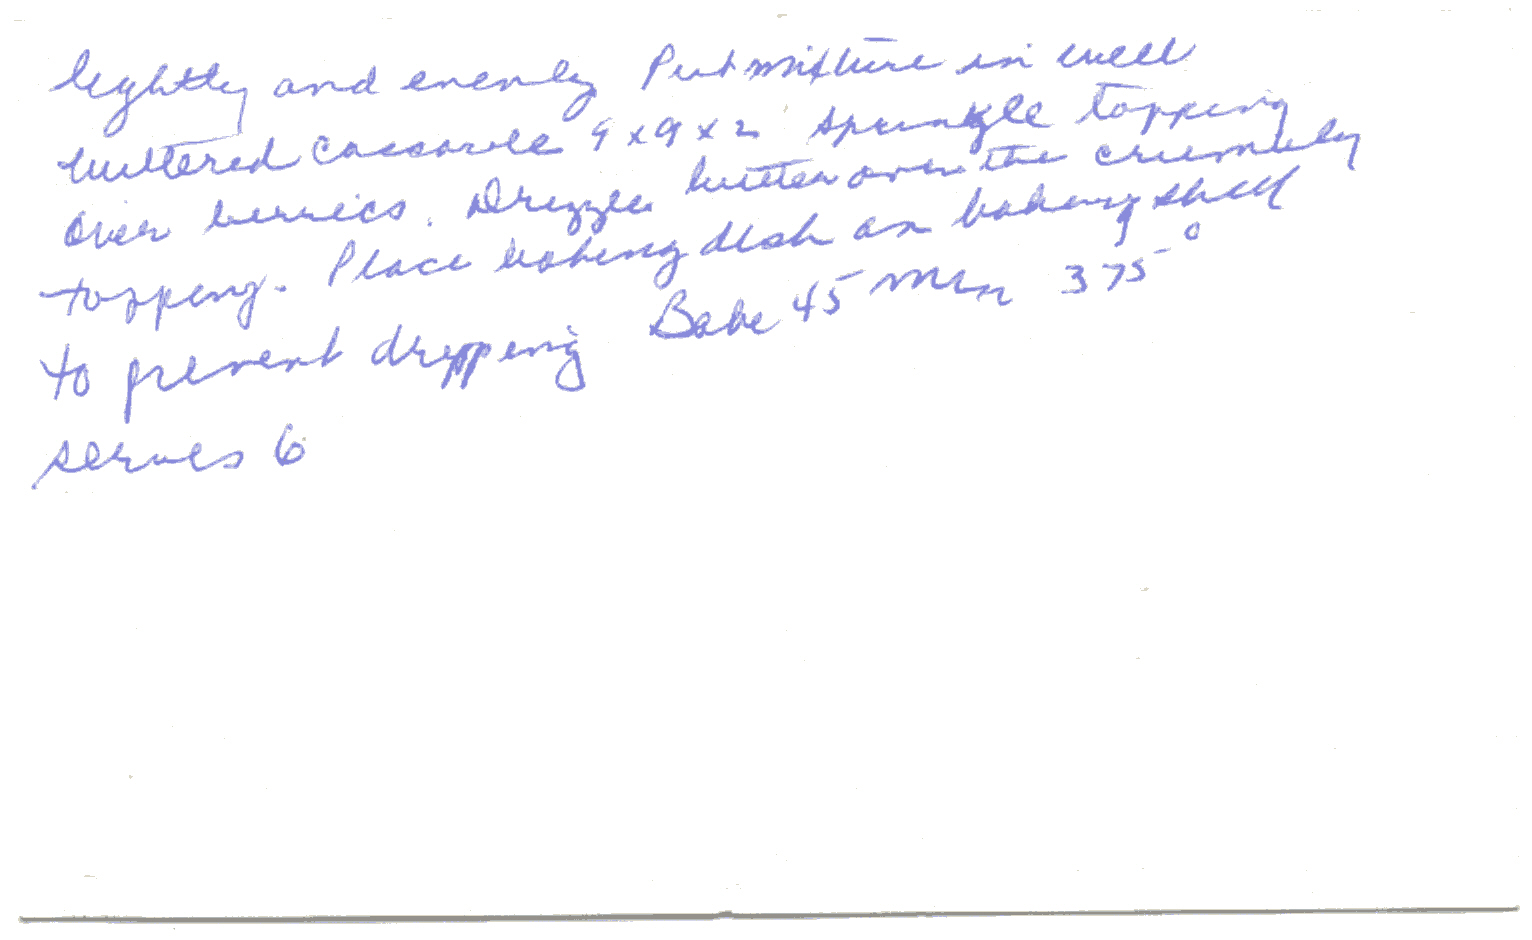 lightly and evenly Put mixture in well
buttered casserole 9 x 9 x 2 sprinkle topping
over berries. Drizzle butter over the crumbly
topping. Place baking dish on baking sheet
to prevent dripping Bake 45 min 375°
serves 6